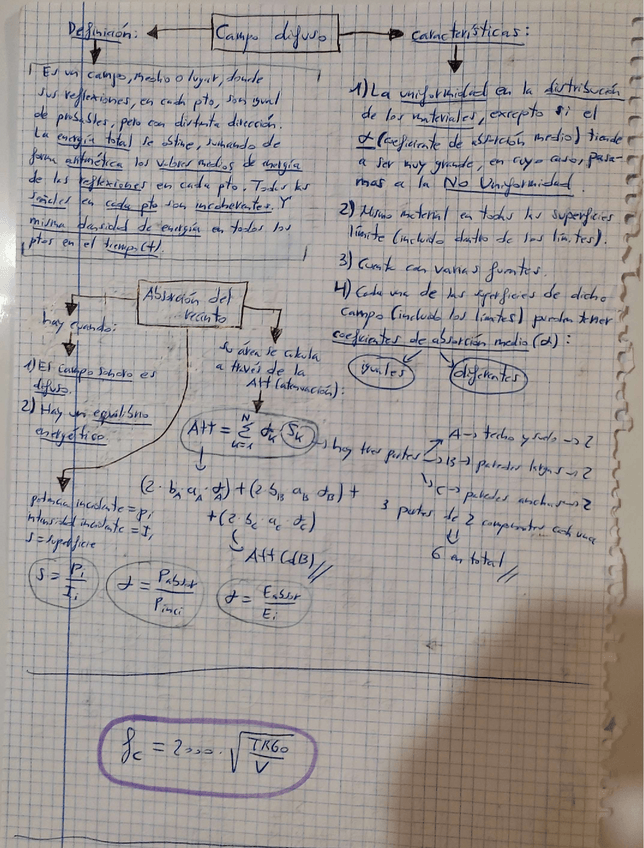 Campo difuso
Definición:
características:
Es un campo, medio o lugar, donde
sus reflexiones, en cada pto, son igual
de probables, pero con distinta dirección.
La energía total se obtine, sumando de
forma aritmética los valores medios de energía
de las reflexiones en cada pto. Todas las
señales en cada pto son incoherentes. Y
misma densidad de energía en todos los
ptos en el tiempo (t).
1) La uniformidad en la distribución
de los materiales, excepto si el
α (coeficiente de absorción medio) tiende
a ser muy grande, en cuyo caso, pasa-
mos a la No Uniformidad.
2) Mismo material en todas las superficies
límite (incluido dentro de los límites).
3) Cuenta con varias fuentes.
4) Cada una de las superficies de dicho
campo (incluido los límites) pueden tener
coeficientes de absorción medio (α):
iguales
diferentes
Absorción del
recinto
hay cuando:
1) El campo sonoro es
difuso.
2) Hay un equilibrio
energético.
Su área se calcula
a través de la
AH (atenuación):
AH = Σ N k=1 αk Sk
hay tres partes
A → techo y suelo → 2
B → paredes largas → 2
C → paredes anchas → 2
3 partes de 2 componentes cada una
6 en total
(2 · bA aA αA) + (2 bB aB αB) +
+ (2 bc ac αc)
AH (dB)
potencia incidente = Pi
intensidad incidente = Ii
S = superficie
S = Pi / Ii
α = Pabsor / Pinci
α = Eabsor / Ei
fc = 2000 · √TR60 / V